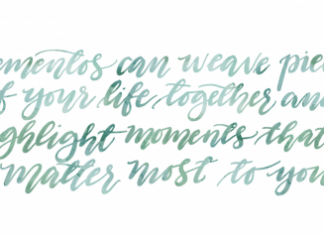 ementos can weave pie
f your life together an
ghlight moments that
matter most to you